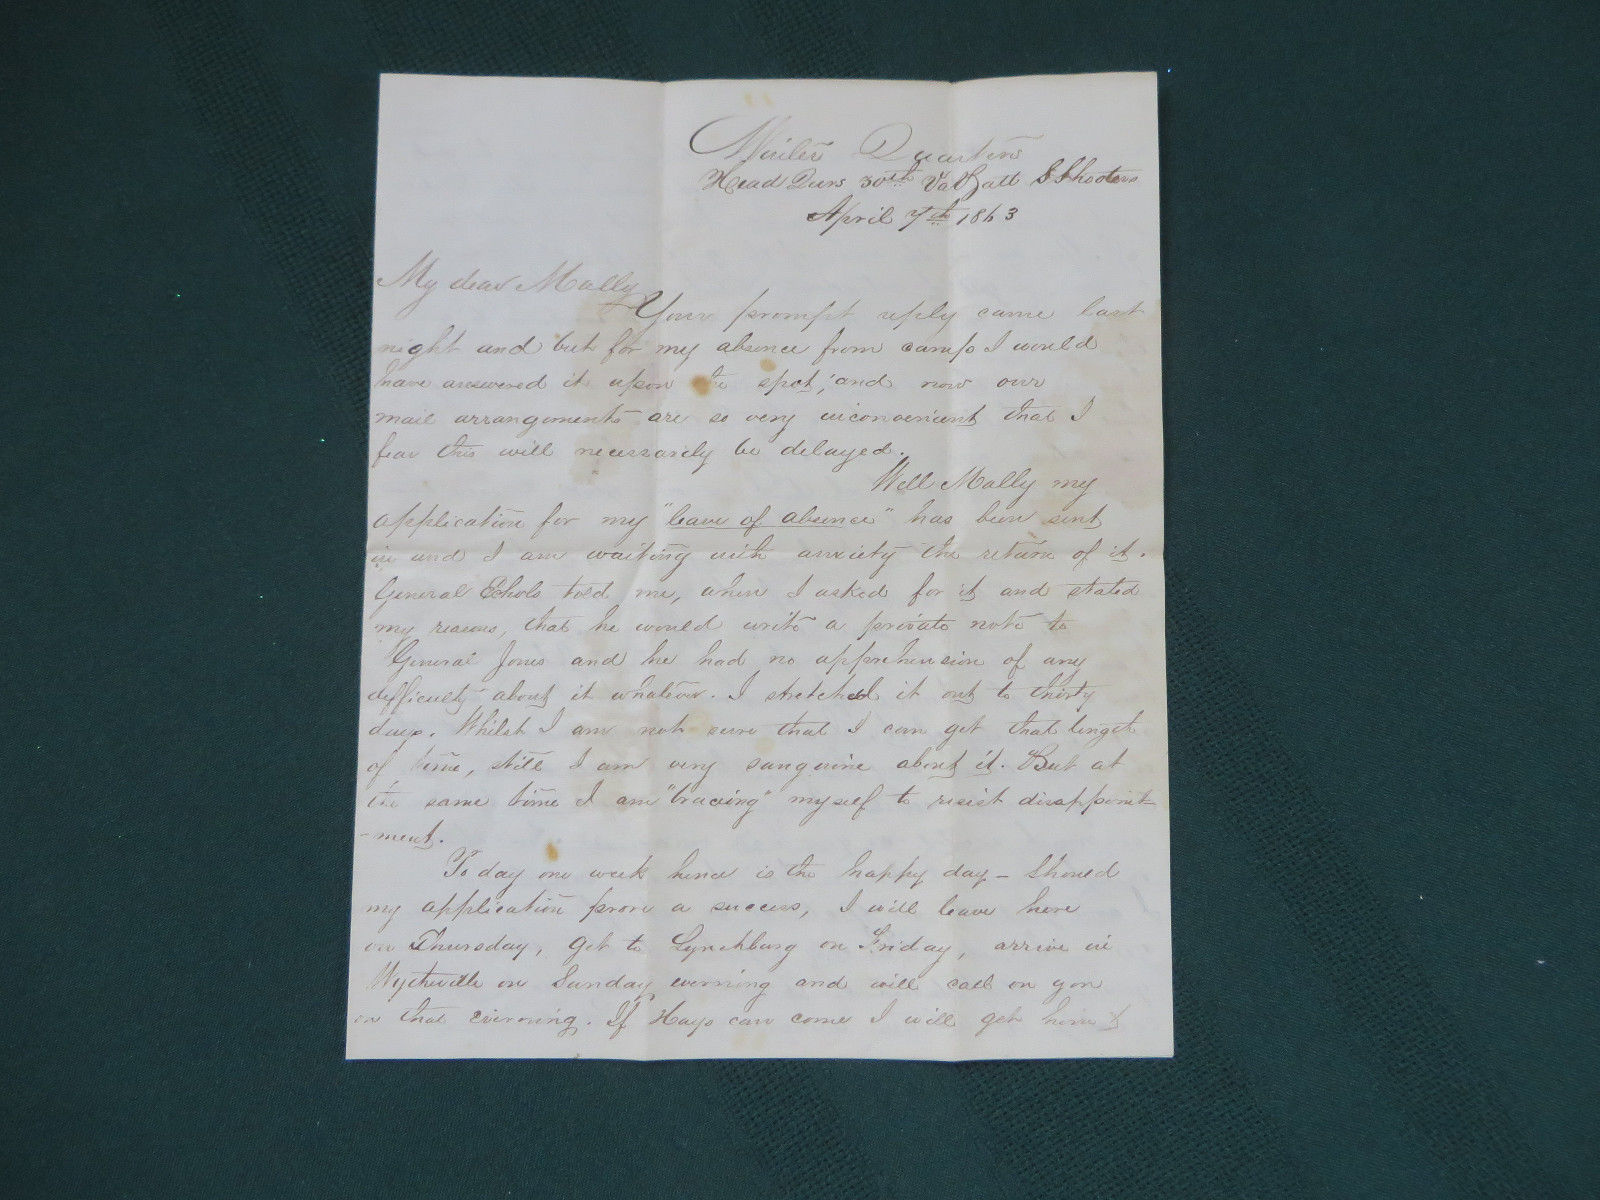 Winter Quarters
Head Qurs 30th Va Batt S Shooters
April 7th 1863
My dear Mally
Your prompt reply came last
night and but for my absence from camp I would
have answered it upon the spot, and now our
mail arrangements are so very inconvenient that I
fear this will necessarily be delayed.
Well Mally my
application for my "leave of absence" has been sent
in and I am waiting with anxiety the return of it.
General Echols told me, when I asked for it and stated
my reasons, that he would write a private note to
General Jones and he had no apprehension of any
difficulty about it whatever. I stretched it out to thirty
days. Whilst I am not sure that I can get that length
of time, still I am very sanguine about it. But at
the same time I am "bracing" myself to resist disappoint
-ment.
To day one week hence is the happy day - Should
my application prove a success, I will leave here
on Thursday, get to Lynchburg on Friday, arrive in
Wytheville on Sunday evening and will call on you
on that evening. If Hays can come I will get him to